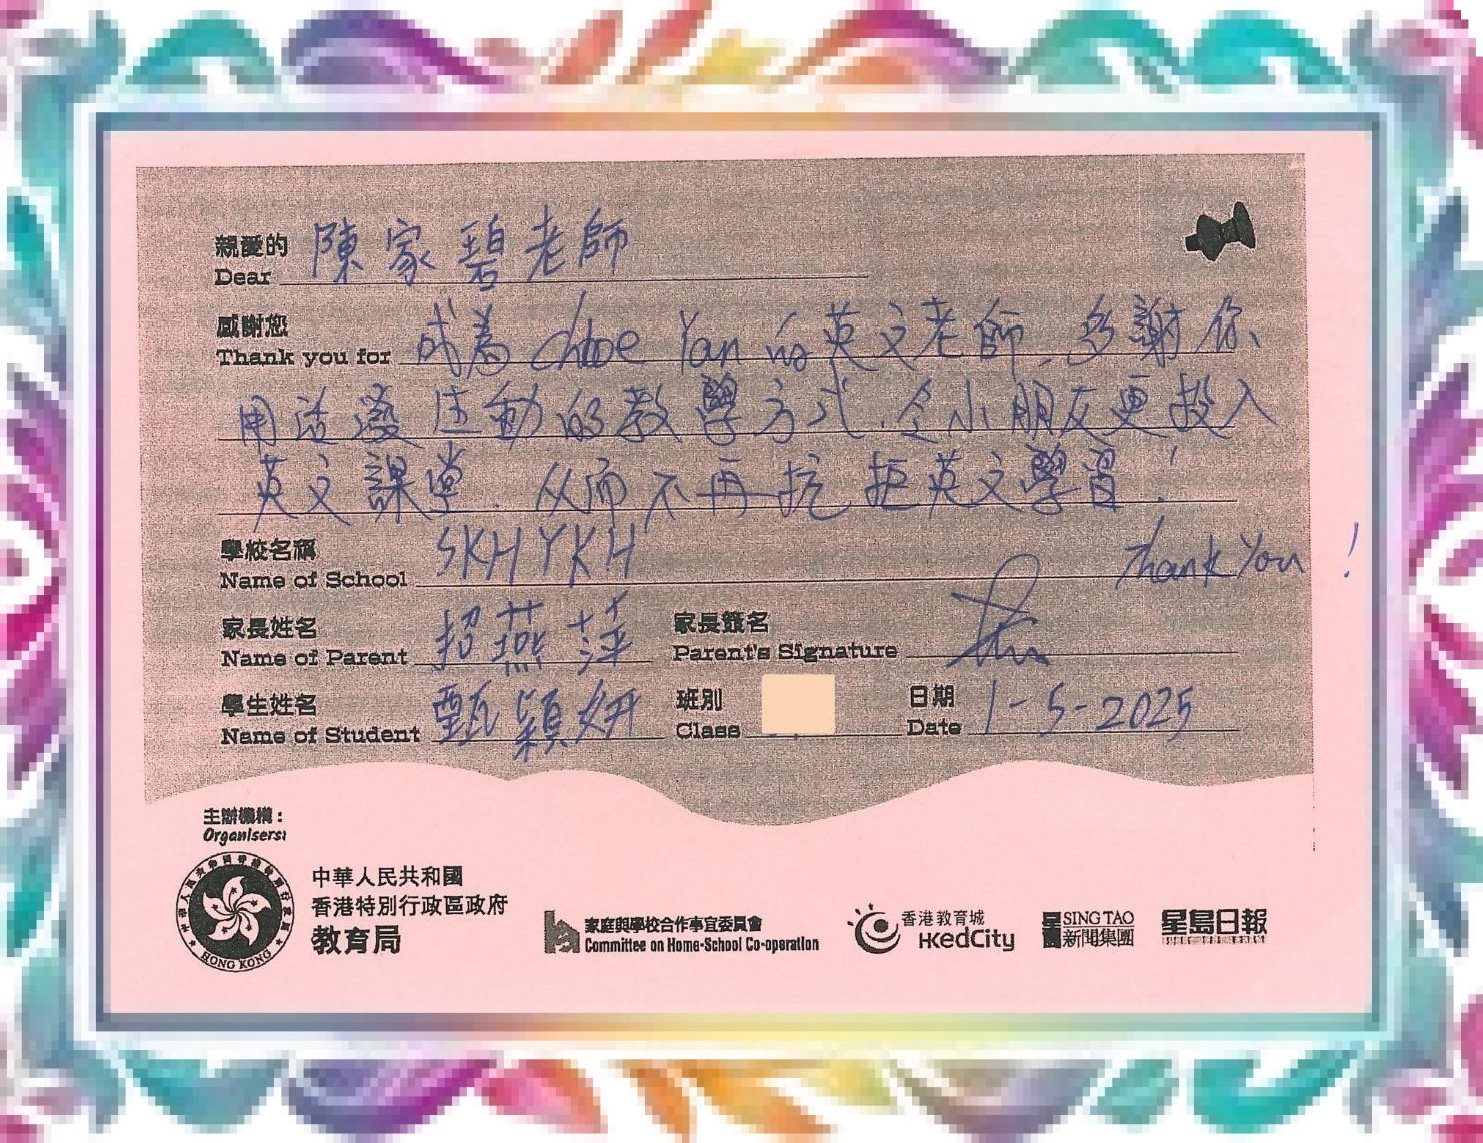 親愛的 陳家碧老師
Dear
感謝您 成為 Chloe Yan 的英文老師，多謝你
Thank you for
用活潑生動的教學方式，令小朋友更投入
英文課堂，从而不再抗拒英文學習！
學校名稱 SKHYKH
Name of School
Thank You!
家長姓名 招燕萍 家長簽名
Name of Parent Parent's Signature
學生姓名 甄穎妍 班別 日期 1-5-2025
Name of Student Class Date
主辦機構：
Organisers:
中華人民共和國
香港特別行政區政府
教育局
HONG KONG
家庭與學校合作事宜委員會
Committee on Home-School Co-operation
香港教育城
HKedCity
星島 SING TAO
新聞集團
星島日報